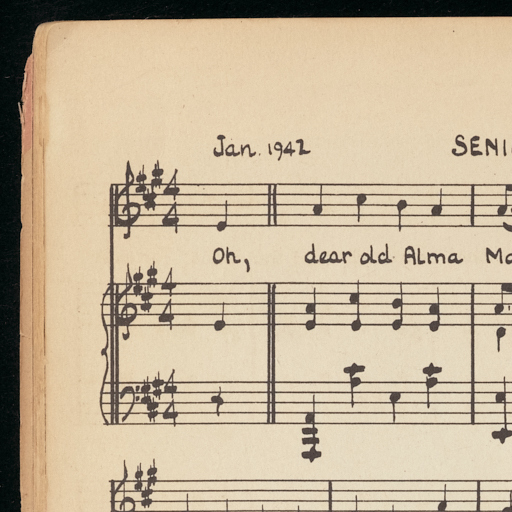 Jan. 1942 SENI
Oh, dear old Alma Ma